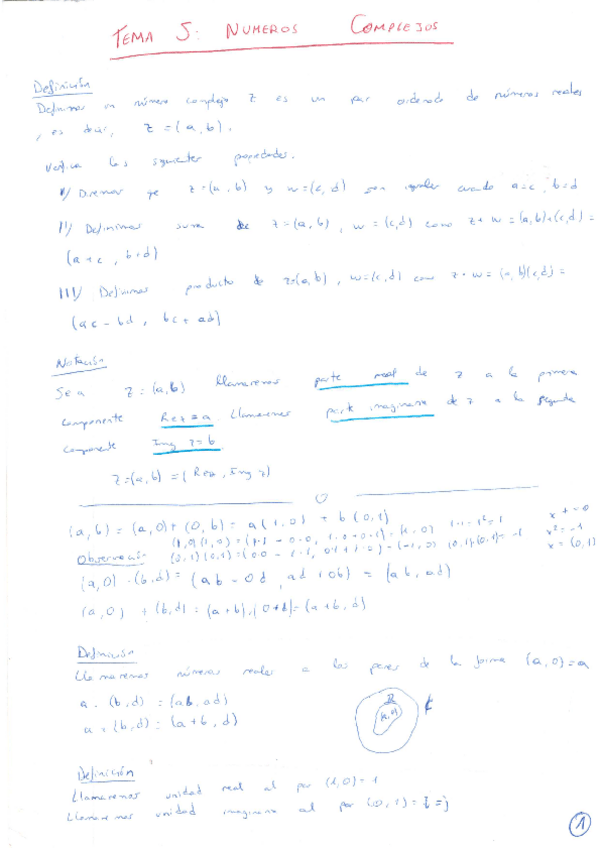 TEMA 5: NUMEROS COMPLEJOS
Definición
Definimos un número complejo z es un par ordenado de números reales
, es decir, z = (a, b).
Verifica las siguientes propiedades.
I/ Diremos que z=(a, b) y w=(c, d) son iguales cuando a=c, b=d
II/ Definimos suma de z=(a, b), w=(c,d) como z+w = (a,b)+(c,d) =
(a+c, b+d)
III/ Definimos producto de z=(a,b), w=(c,d) como z·w = (a,b)(c,d) =
(ac-bd, bc+ad)
Notación
Sea z=(a,b) llamaremos parte real de z a la primera
componente Re z = a. Llamaremos parte imaginaria de z a la segunda
componente Img z = b
z=(a,b) = (Re z, Img z)
(a, b) = (a, 0) + (0, b) = a(1, 0) + b(0, 1)
Observación
(a,0)·(b,d) = (ab-0d, ad+0b) = (ab, ad)
(a,0) + (b,d) = (a+b), (0+d) = (a+b, d)
x² = -1
x = (0,1)
Definición
Llamaremos números reales a los pares de la forma (a,0)=a
a·(b,d) = (ab, ad)
a+(b,d) = (a+b, d)
Definición
Llamaremos unidad real al par (1,0)=1
Llamaremos unidad imaginaria al par (0,1)=i=j
1